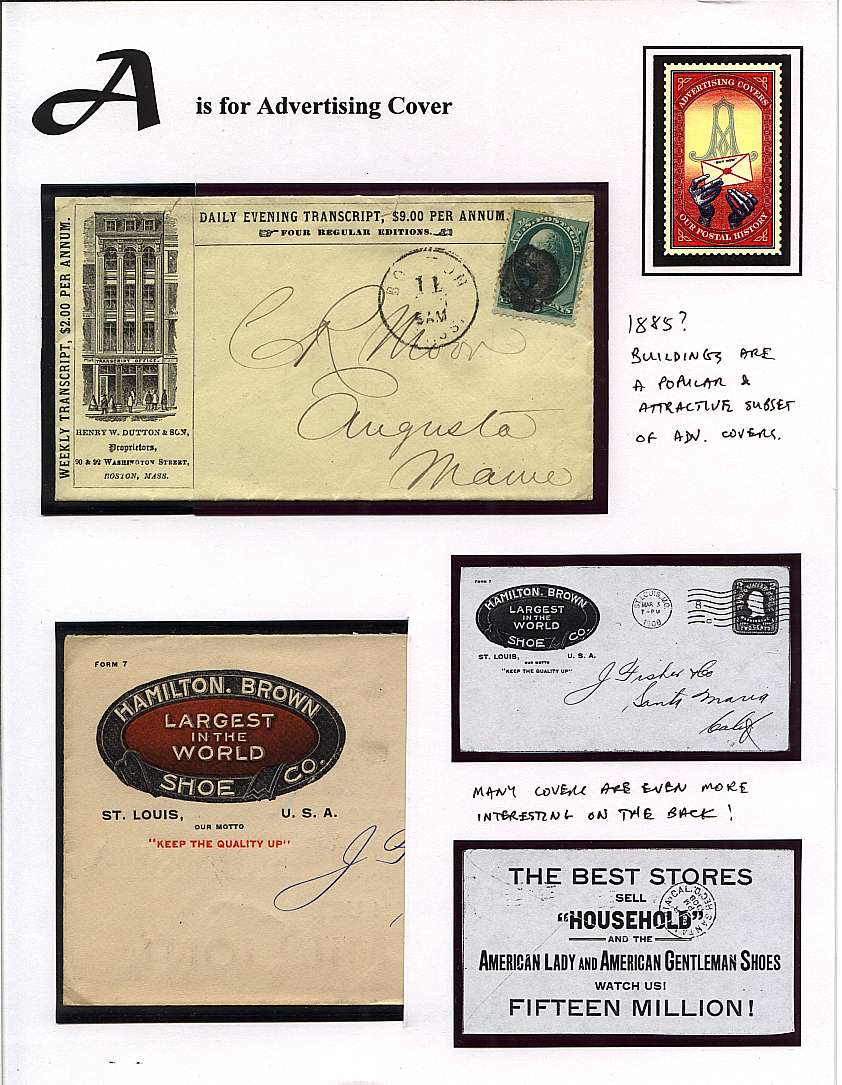 A is for Advertising Cover
ADVERTISING COVERS
A
OUR POSTAL HISTORY
WEEKLY TRANSCRIPT, $2.00 PER ANNUM.
DAILY EVENING TRANSCRIPT, $9.00 PER ANNUM.
FOUR REGULAR EDITIONS.
TRANSCRIPT OFFICE
HENRY W. DUTTON & SON,
Proprietors,
90 & 92 WASHINGTON STREET,
BOSTON, MASS.
11
5AM
C R Moor
Augusta
Maine
1885?
BUILDINGS ARE
A POPULAR &
ATTRACTIVE SUBSET
OF ADV. COVERS.
FORM 7
HAMILTON. BROWN
LARGEST
IN THE
WORLD
SHOE CO.
ST. LOUIS, U. S. A.
OUR MOTTO
"KEEP THE QUALITY UP"
ST. LOUIS, MO.
MAR 3
7-PM
1908
J Fisher & Co
Santa Maria
Calif
FORM 7
HAMILTON. BROWN
LARGEST
IN THE
WORLD
SHOE CO.
ST. LOUIS, U. S. A.
OUR MOTTO
"KEEP THE QUALITY UP"
J F
MANY COVERS ARE EVEN MORE
INTERESTING ON THE BACK!
THE BEST STORES
SELL
"HOUSEHOLD"
AND THE
AMERICAN LADY AND AMERICAN GENTLEMAN SHOES
WATCH US!
FIFTEEN MILLION!